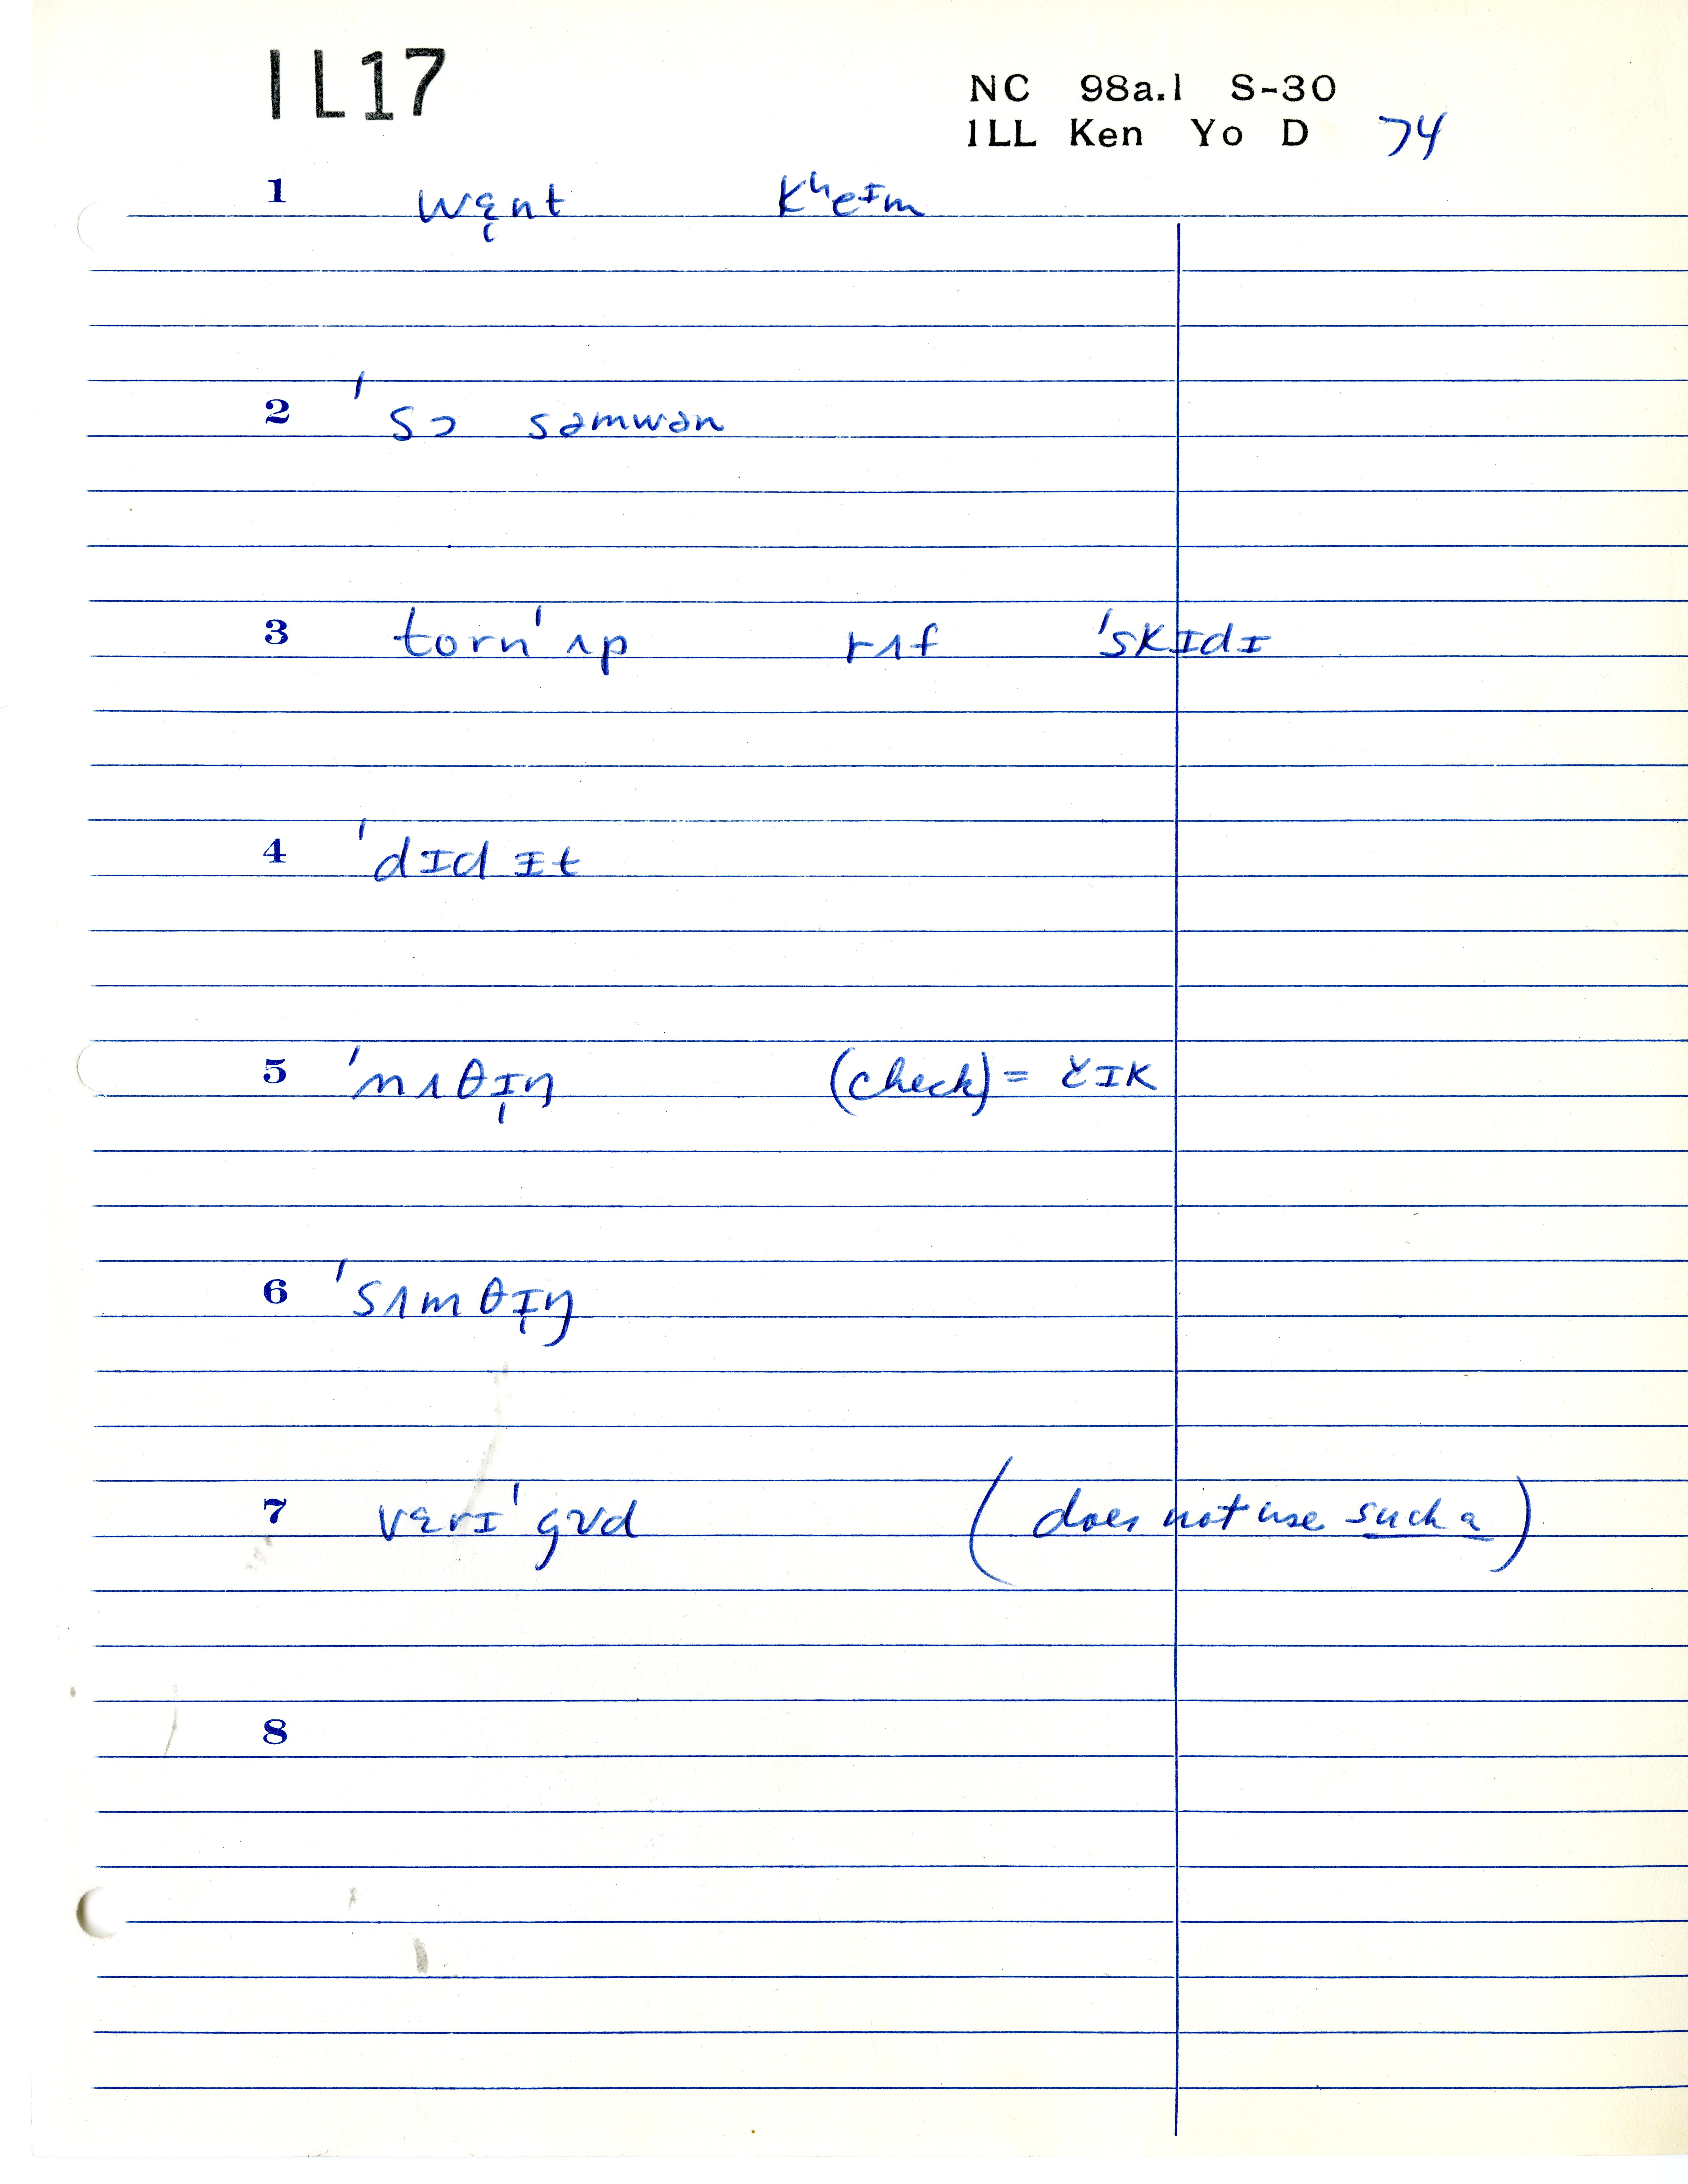 IL17
NC 98a.1 S-30
ILL Ken Yo D 74
1 wɛ̜nt kʰeɪm
2 ˈsɔ səmwən
3 tornˈʌp rʌf ˈskɪdɪ
4 ˈdɪd ɪt
5 ˈnʌθɪ̩ŋ (check) = čɪk
6 ˈsʌmθɪ̩ŋ
7 vɛrɪˈgʊd (does not use such a)
8